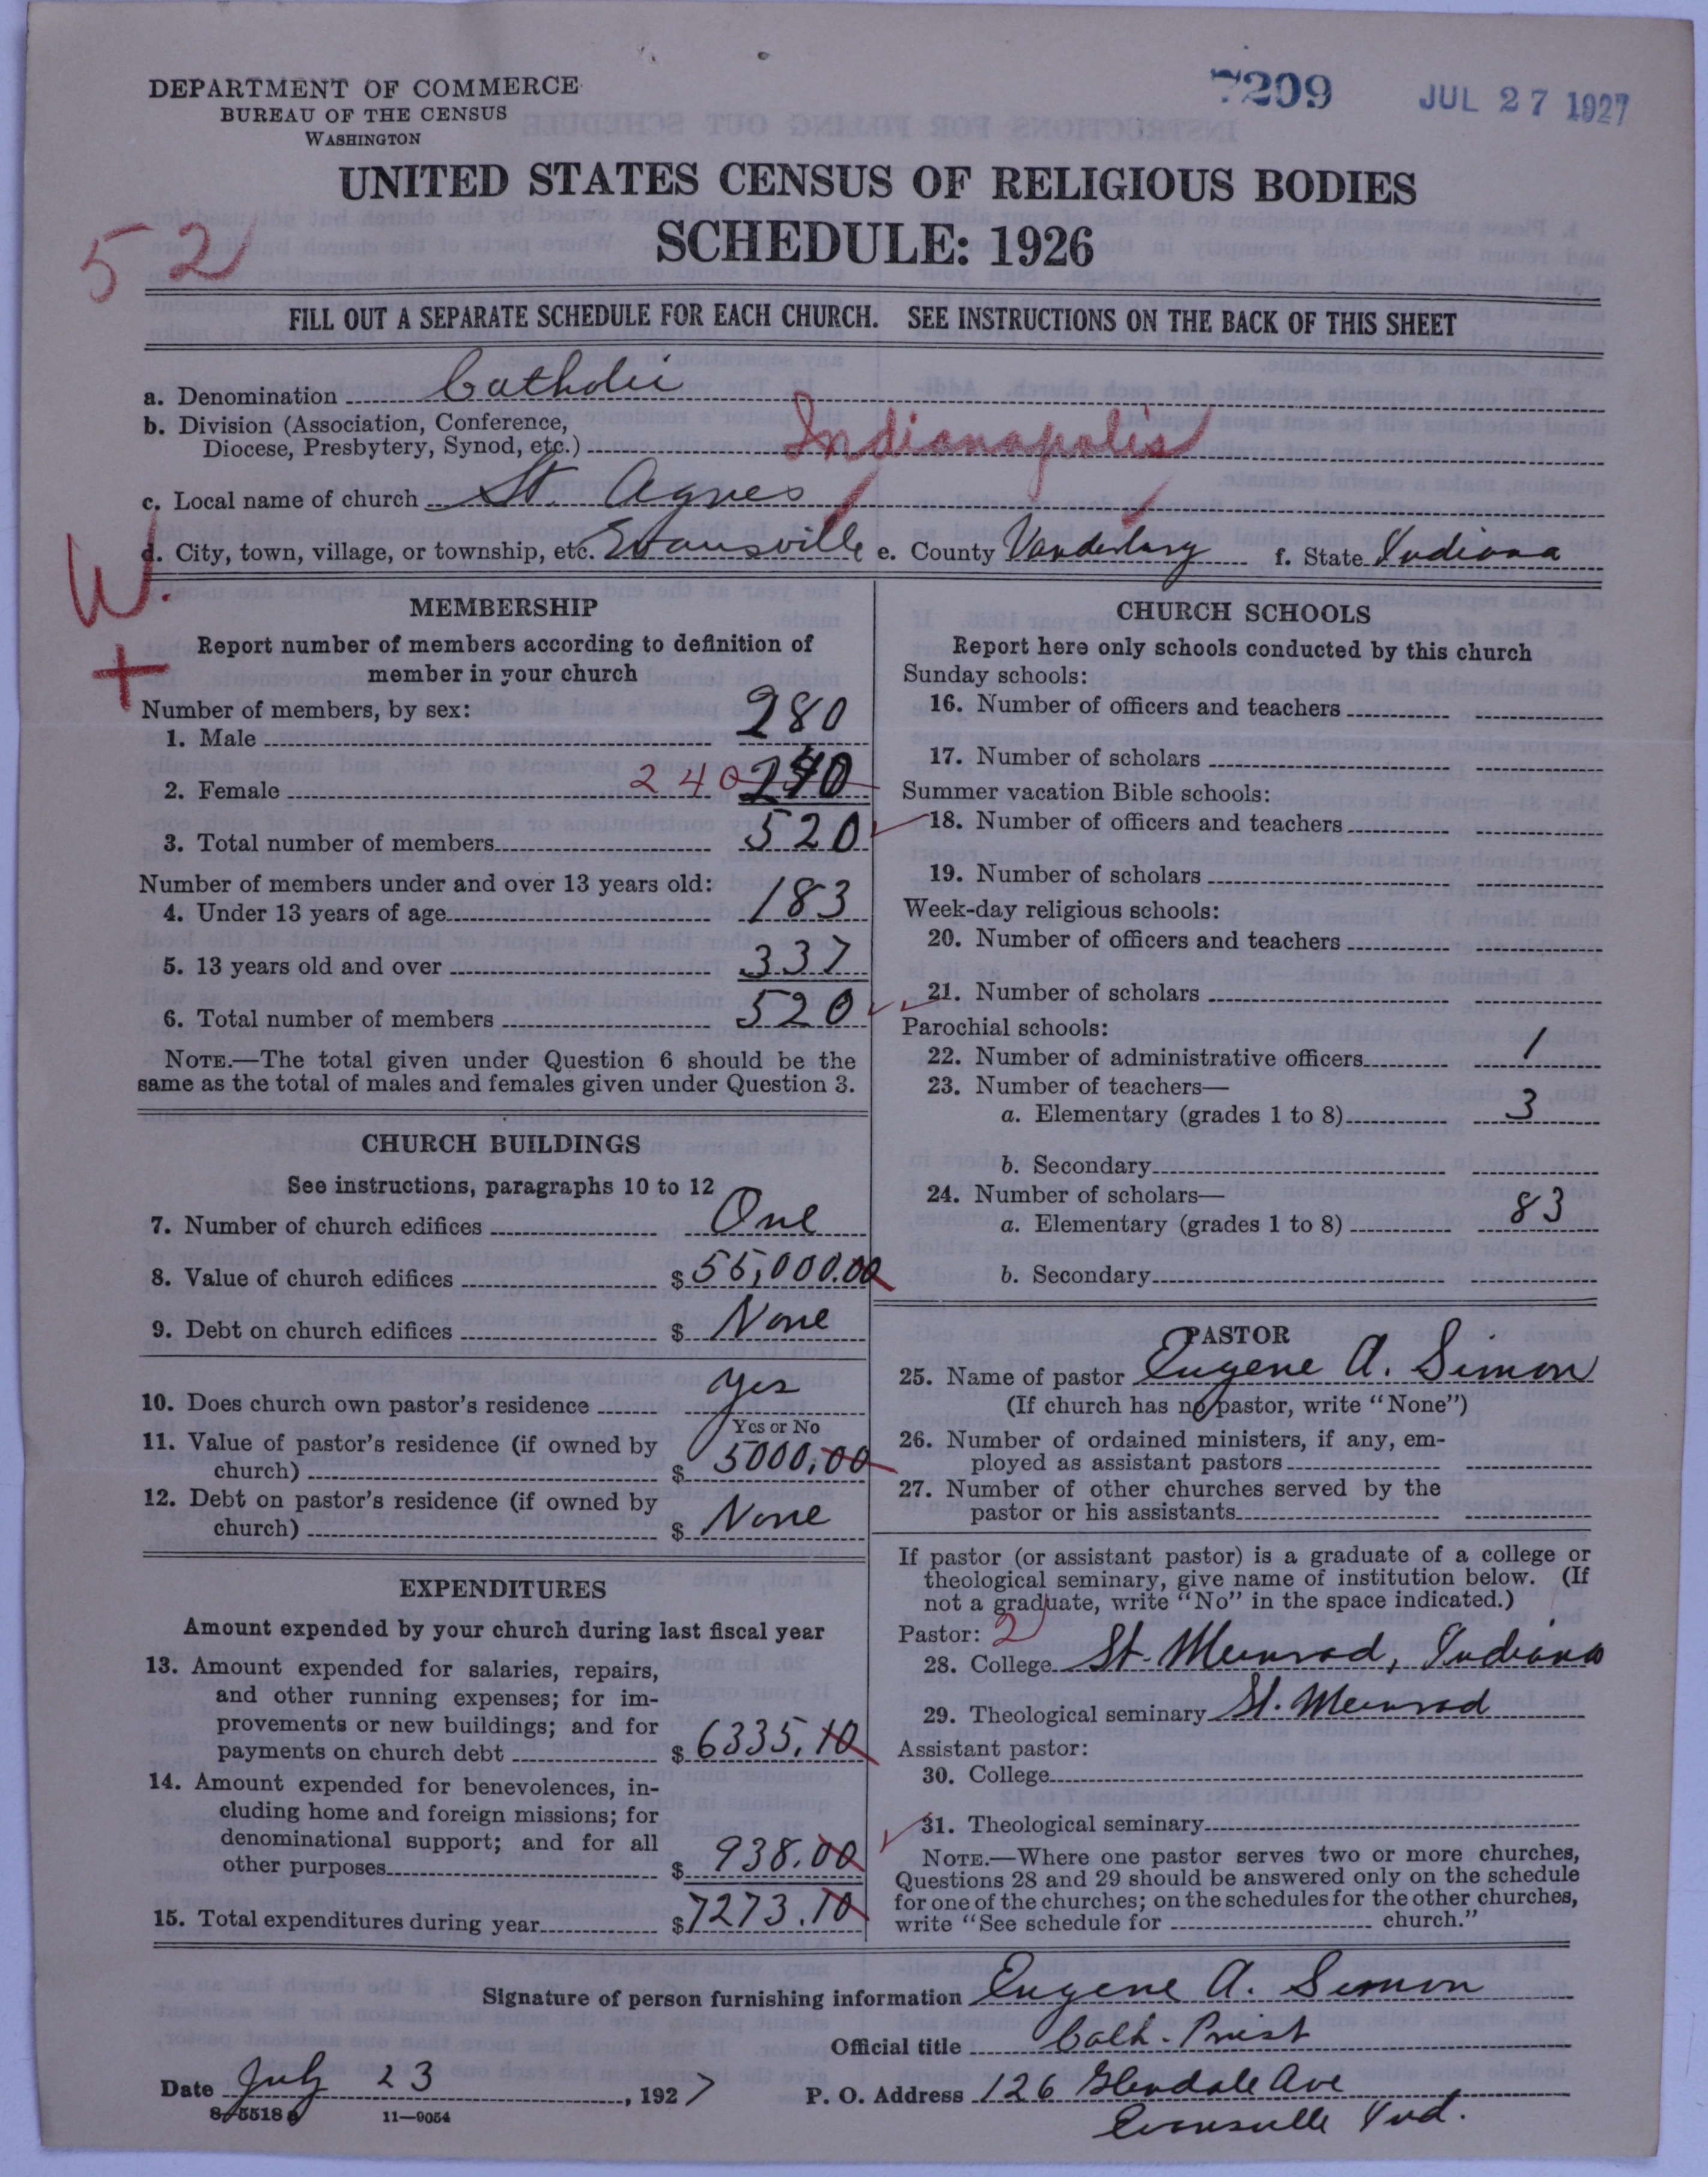 DEPARTMENT OF COMMERCE
BUREAU OF THE CENSUS
WASHINGTON
7209
JUL 27 1927
UNITED STATES CENSUS OF RELIGIOUS BODIES
SCHEDULE: 1926
52
FILL OUT A SEPARATE SCHEDULE FOR EACH CHURCH. SEE INSTRUCTIONS ON THE BACK OF THIS SHEET
a. Denomination Catholic
b. Division (Association, Conference,
Diocese, Presbytery, Synod, etc.) Indianapolis
c. Local name of church St. Agnes
d. City, town, village, or township, etc. Evansville e. County Vanderburg f. State Indiana
W.
+
MEMBERSHIP
Report number of members according to definition of
member in your church
Number of members, by sex:
1. Male 280
2. Female 240 240
3. Total number of members 520
Number of members under and over 13 years old:
4. Under 13 years of age 183
5. 13 years old and over 337
6. Total number of members 520
NOTE.—The total given under Question 6 should be the
same as the total of males and females given under Question 3.
CHURCH BUILDINGS
See instructions, paragraphs 10 to 12
7. Number of church edifices One
8. Value of church edifices $ 55,000.00
9. Debt on church edifices $ None
10. Does church own pastor's residence yes
Yes or No
11. Value of pastor's residence (if owned by
church) $ 5000,00
12. Debt on pastor's residence (if owned by
church) $ None
EXPENDITURES
Amount expended by your church during last fiscal year
13. Amount expended for salaries, repairs,
and other running expenses; for im-
provements or new buildings; and for
payments on church debt $ 6335.10
14. Amount expended for benevolences, in-
cluding home and foreign missions; for
denominational support; and for all
other purposes $ 938.00
15. Total expenditures during year $ 7273.10
CHURCH SCHOOLS
Report here only schools conducted by this church
Sunday schools:
16. Number of officers and teachers
17. Number of scholars
Summer vacation Bible schools:
18. Number of officers and teachers
19. Number of scholars
Week-day religious schools:
20. Number of officers and teachers
21. Number of scholars
Parochial schools:
22. Number of administrative officers 1
23. Number of teachers—
a. Elementary (grades 1 to 8) 3
b. Secondary
24. Number of scholars—
a. Elementary (grades 1 to 8) 83
b. Secondary
PASTOR
25. Name of pastor Eugene A. Simon
(If church has no pastor, write "None")
26. Number of ordained ministers, if any, em-
ployed as assistant pastors
27. Number of other churches served by the
pastor or his assistants
If pastor (or assistant pastor) is a graduate of a college or
theological seminary, give name of institution below. (If
not a graduate, write "No" in the space indicated.)
Pastor: 2
28. College St. Meinrad, Indiana
29. Theological seminary St. Meinrad
Assistant pastor:
30. College
31. Theological seminary
NOTE.—Where one pastor serves two or more churches,
Questions 28 and 29 should be answered only on the schedule
for one of the churches; on the schedules for the other churches,
write "See schedule for church."
Signature of person furnishing information Eugene A. Simon
Official title Cath. Priest
Date July 23, 1927 P. O. Address 126 Glendale Ave
Evansville Ind.
8-5518 a 11—9054